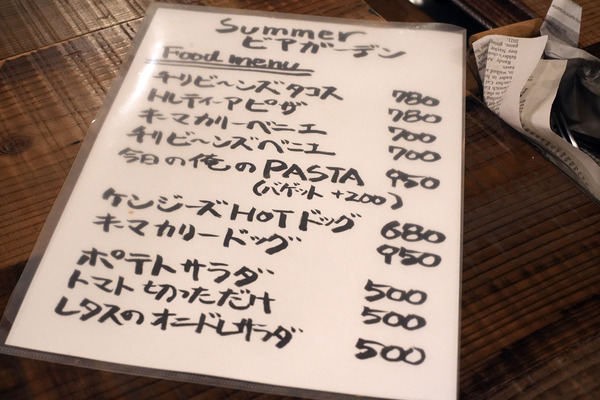 Summer
ビアガーデン
Food menu
チリビーンズタコス 780
トルティーアピザ 780
キーマカリーベニエ 700
チリビーンズベニエ 700
今日の俺のPASTA 950
(バゲット +200)
ケンジーズHOTドッグ 680
キーマカリードッグ 950
ポテトサラダ 500
トマト切っただけ 500
レタスのオニドレサラダ 500